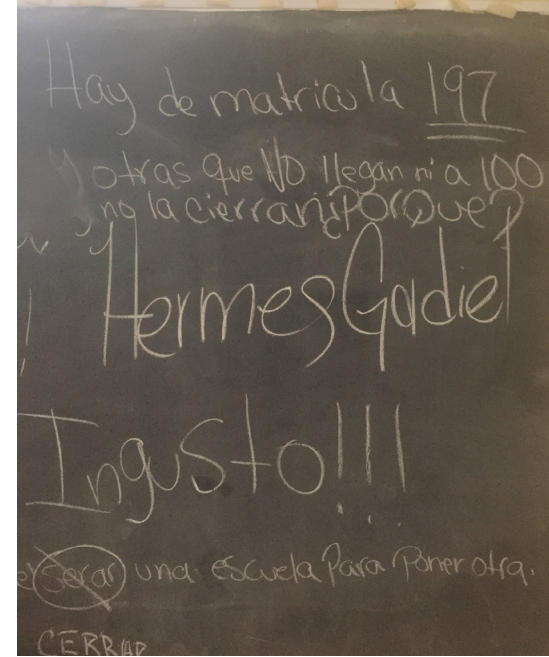 Hay de matricula 197
y otras que No llegan ni a 100
no la cierran ¿Porque?
Hermes Gadiel
Ingusto!!!
serar una escuela Para Poner otra.
CERRAR